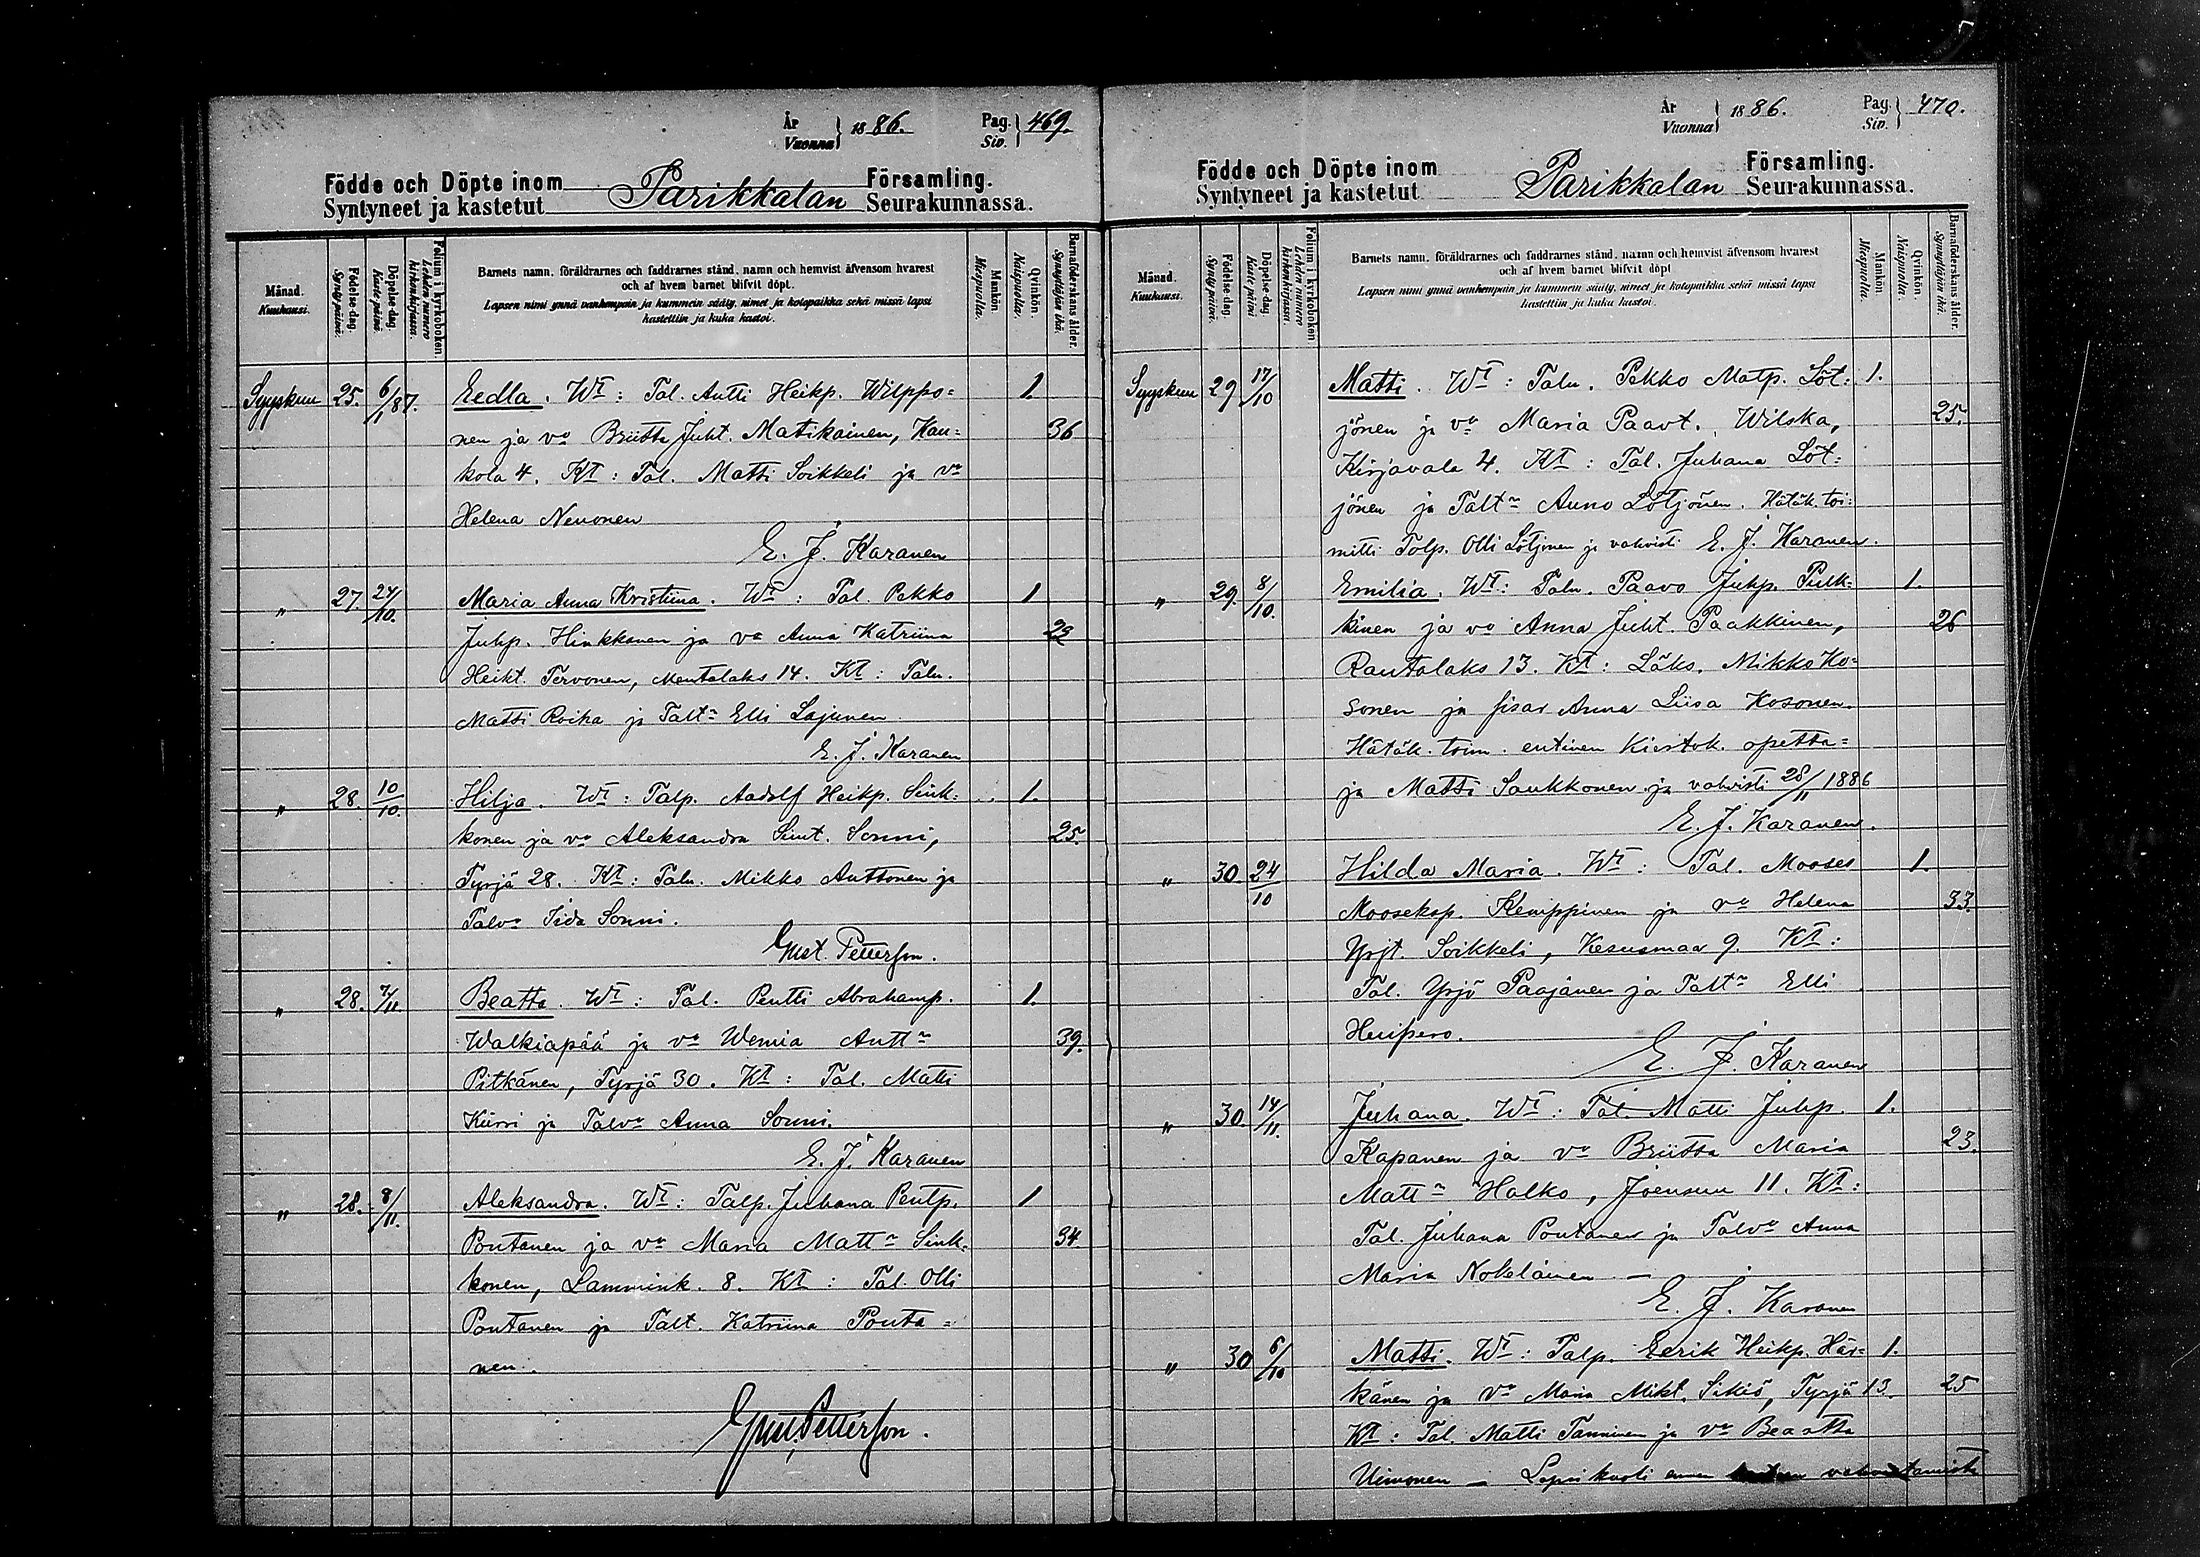 År Vuonna } 1886. Pag. Siv. } 469.
Födde och Döpte inom Parikkalan Församling.
Syntyneet ja kastetut Seurakunnassa.
Månad. Kuukausi.
Födelse-dag. Synty päivä.
Döpelse-dag. Kaste päivä
Folium i kyrkoboken. Lehden numero kirkonkirjassa.
Barnets namn, föräldrarnes och faddrarnes stånd, namn och hemvist äfvensom hvarest
och af hvem barnet blifvit döpt.
Lapsen nimi ynnä vanhempain ja kummein sääty, nimet ja kotopaikka sekä missä lapsi
kastettiin ja kuka kastoi.
Mankön. Miespuolia.
Qvinkön. Naispuolia.
Barnaföderskans ålder. Synnyttäjän ikä.
Syyskuu 25. 6/1 87. Eedla. Wt: Tal. Antti Heikp. Wilppo= 1.
nen ja vo Briitta Juht. Matikainen, Kau= 36
kola 4. Kt: Tal. Matti Soikkeli ja vo
Helena Nevonen
E. J. Karanen
" 27. 24/10. Maria Anna Kristiina. Wt: Tal. Pekko 1
Juhp. Hinkkanen ja vo Anna Katriina 23
Heikt. Tervonen, Mentalaks 14. Kt: Talu.
Matti Roiha ja Talt. Elli Lajunen
E. J. Karanen
" 28. 10/10. Hilja. Wt: Talp. Aadolf Heikp. Sink= 1.
konen ja vo Aleksandra Simt. Sonni, 25.
Tyrjä 28. Kt: Talu. Mikko Anttonen ja
Talvo Iida Sonni.
Gust. Petterson.
" 28. 7/11. Beatta. Wt: Tal. Pentti Abrahamp. 1.
Walkiapää ja vo Wernia Antt. 39.
Pitkänen, Tyrjä 30. Kt: Tal. Matti
Kiirri ja Talvo Anna Sonni.
E. J. Karanen
" 28. 8/11. Aleksandra. Wt: Talp. Juhana Pentp. 1
Pontanen ja vo Maria Matt. Sink= 34.
konen, Lammink. 8. Kt: Tal. Olli
Pontanen ja Talt. Katriina Ponta=
nen.
Gust. Petterson.
År Vuonna } 1886. Pag. Siv. } 470.
Födde och Döpte inom Parikkalan Församling.
Syntyneet ja kastetut Seurakunnassa.
Månad. Kuukausi.
Födelse-dag. Synty päivä.
Döpelse-dag. Kaste päivä
Folium i kyrkoboken. Lehden numero kirkonkirjassa.
Barnets namn, föräldrarnes och faddrarnes stånd, namn och hemvist äfvensom hvarest
och af hvem barnet blifvit döpt.
Lapsen nimi ynnä vanhempain ja kummein sääty, nimet ja kotopaikka sekä missä lapsi
kastettiin ja kuka kastoi.
Mankön. Miespuolia.
Qvinkön. Naispuolia.
Barnaföderskans ålder. Synnyttäjän ikä.
Syyskuu 29 17/10 Matti. Wt: Talu. Pekko Matp. Löt= 1.
jönen ja vo Maria Paavt. Wilska, 25.
Kirjavala 4. Kt: Tal. Juhana Löt=
jönen ja Talt. Anna Lötjönen. Hätäk. toi=
mitti Talp. Olli Lötjönen ja vahvisti E. J. Karanen.
" 29. 8/10. Emilia. Wt: Talu. Paavo Juhp. Pulk= 1.
kinen ja vo Anna Juht. Paakkinen, 26
Rautalaks 13. Kt: Läks. Mikko Ko=
sonen ja sisar Anna Liisa Kosonen.
Hätäk. toim. entinen kiertok. opetta=
ja Matti Saukkonen ja vahvisti 28/11 1886
E. J. Karanen.
" 30. 24/10 Hilda Maria. Wt: Tal. Mooses 1.
Moosekp. Kemppinen ja vo Helena 33.
Yrjt. Soikkeli, Kesusmaa 9. Kt:
Tal. Yrjö Paajanen ja Talt. Elli
E. J. Karanen
" 30. 14/11. Juhana. Wt: Tal. Matti Juhp. 1.
Kapanen ja vo Briitta Maria 23.
Matt. Halko, Joensuu 11. Kt:
Tal. Juhana Pontanen ja Talvo Anna
Maria Nokelainen —
E. J. Karanen
" 30 6/10 Matti. Wt: Talp. Eerik Heikp. Här= 1.
känen ja vo Maria Mikt. Sikiö, Tyrjä 13. 25
Kt: Tal. Matti Tanninen ja vo Beatta
Uimonen — Lapsi kuoli ennen vahvistamista